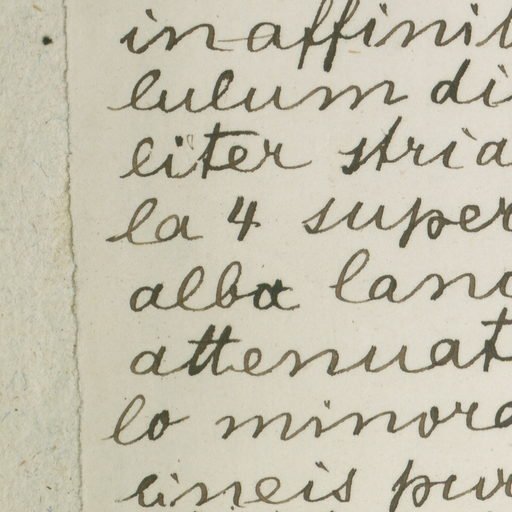 in affinit
lulum di
liter stria
la 4 super
alba lanc
attenuat
lo minora
lineis pur